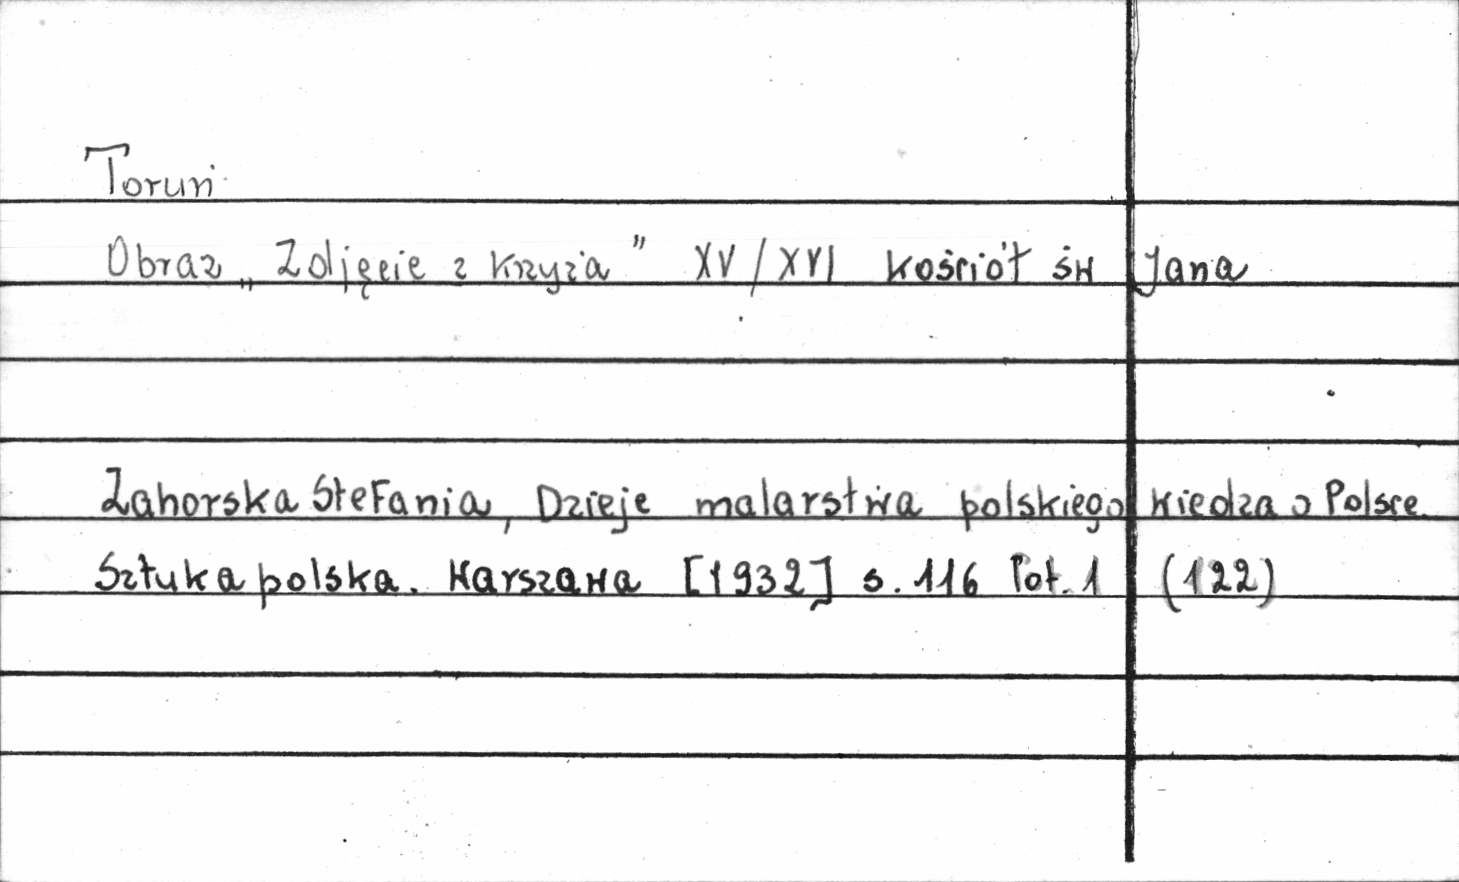 Toruń
Obraz „Zdjęcie z krzyża" XV/XVI kościół św Jana
Zahorska Stefania, Dzieje malarstwa polskiego Wiedza o Polsce.
Sztuka polska. Warszawa [1932] s. 116 Fot. 1 (122)